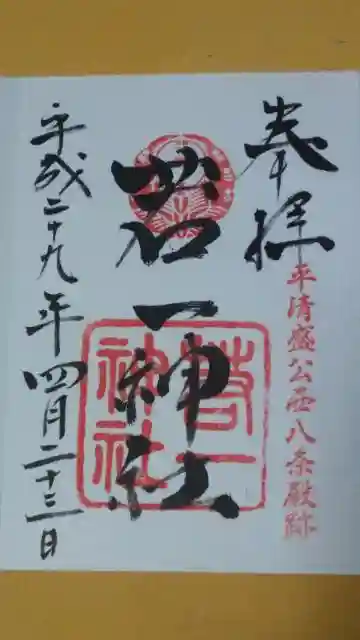 奉拝
平清盛公西八条殿跡
若一神社
若一
神社
平成二十九年四月二十三日